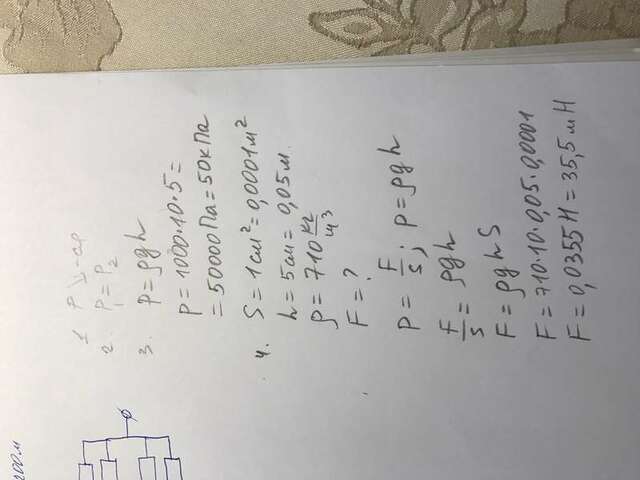 200м
1. P ↓ -ся
2. P₁ = P₂
3. P = ρgh
P = 1000·10·5 =
= 50000 Па = 50 кПа
4. S = 1 см² = 0,0001 м²
h = 5 см = 0,05 м.
ρ = 710 кг/м³
F = ?
P = F/S; P = ρgh
F/S = ρgh
F = ρghS
F = 710·10·0,05·0,0001
F = 0,0355 Н = 35,5 мН